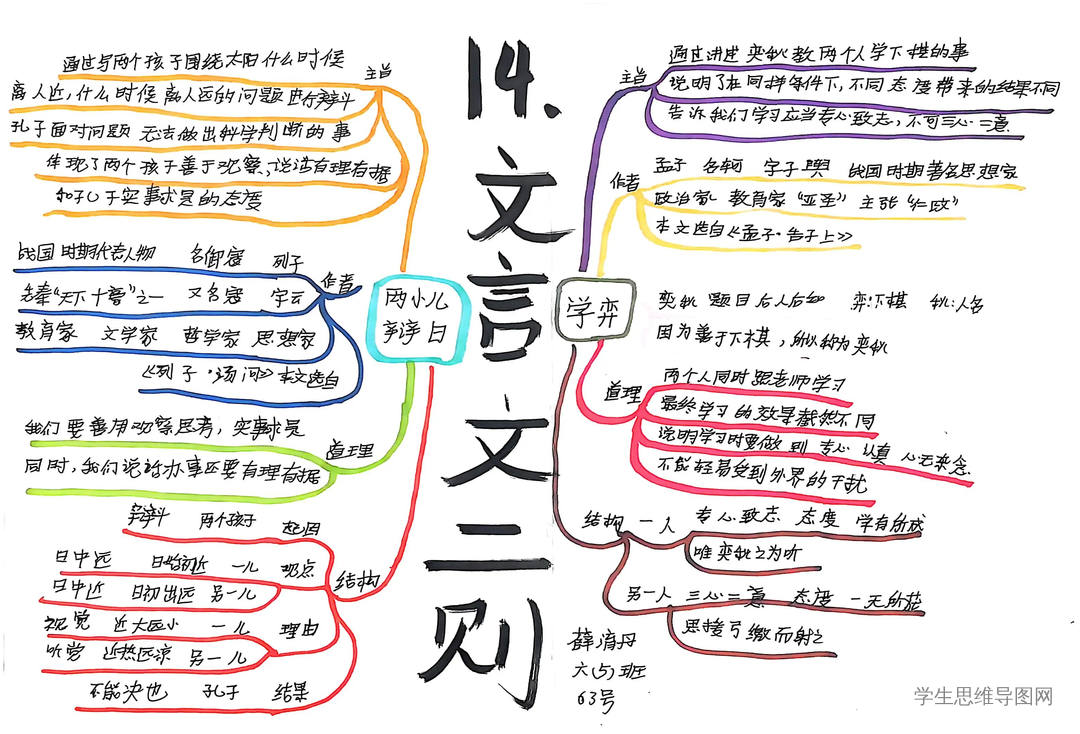 14、文言文二则
两小儿辩日
主旨
通过写两个孩子围绕太阳什么时候
离人近，什么时候离人远的问题进行辩斗
孔子面对问题 无法做出科学判断的事
体现了两个孩子善于观察、说话有理有据
和孔子实事求是的态度
作者
战国时期代表人物 名御寇 列子
先秦“天下十豪”之一 又名寇 字云
教育家 文学家 哲学家 思想家
《列子·汤问》本文选自
道理
我们要善用观察思考，实事求是
同时，我们说话办事还要有理有据
结构
辩斗 两个孩子 起因
日中远 日始初近 一儿 观点
日中近 日初出远 另一儿
视觉 近大远小 一儿 理由
听觉 近热远凉 另一儿
不能决也 孔子 结果
学弈
主旨
通过讲述 奕秋教两个人学下棋的事
说明了在同样条件下，不同态度带来的结果不同
告诉我们学习应当专心致志，不可三心二意
作者
孟子 名轲 字子舆 战国时期著名思想家
政治家 教育家 “亚圣” 主张“仁政”
本文选自《孟子·告子上》
奕秋 题目后人后加 弈：下棋 秋：人名
因为善于下棋，所以称为奕秋
道理
两个人同时跟老师学习
最终学习的效果截然不同
说明学习时要做到 专心 认真 心无杂念
不能轻易受到外界的干扰
结构
一人 专心致志 态度 学有所成
唯奕秋之为听
另一人 三心二意 态度 一无所获
思援弓缴而射之
薛消丹
六(5)班
63号
学生思维导图网